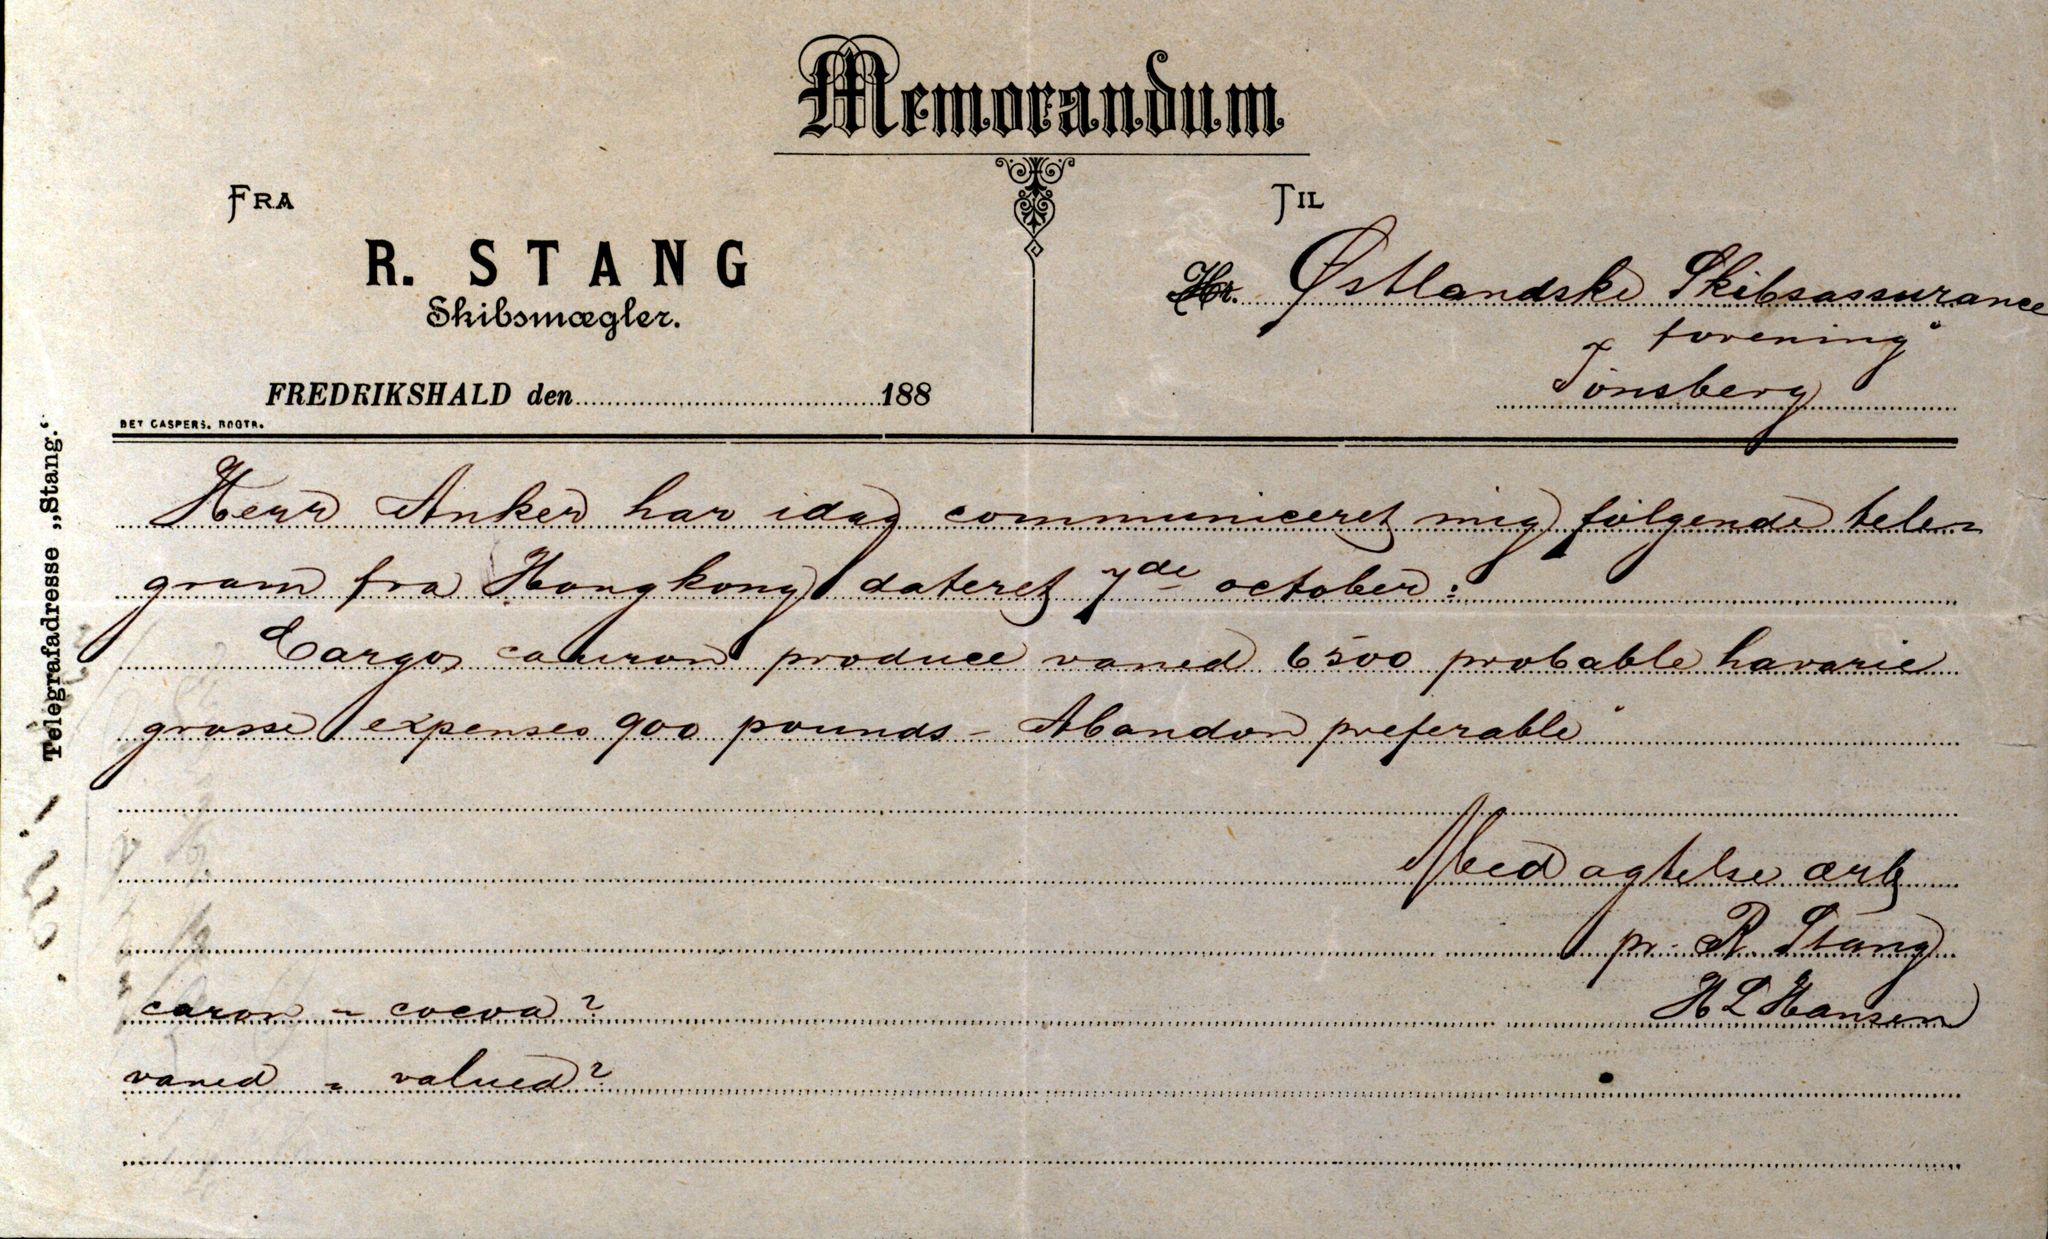 Memorandum
FRA
R. STANG
Skibsmægler.
FREDRIKSHALD den 188
DET CASPERS. BOGTR.
Telegrafadresse „Stang.“
TIL
Hr. Østlandske Skibsassurance
forening"
Tønsberg
Herr Anker har idag communiceret mig følgende tele-
gram fra Hongkong dateret 7de october:
Cargo produce vaned 6500 probable havarie
grosse expenses 900 pounds - Abandon preferable"
Med agtelse ærb
pr. R. Stang
H L Hansen
caron = cocoa?
vaned = valued?